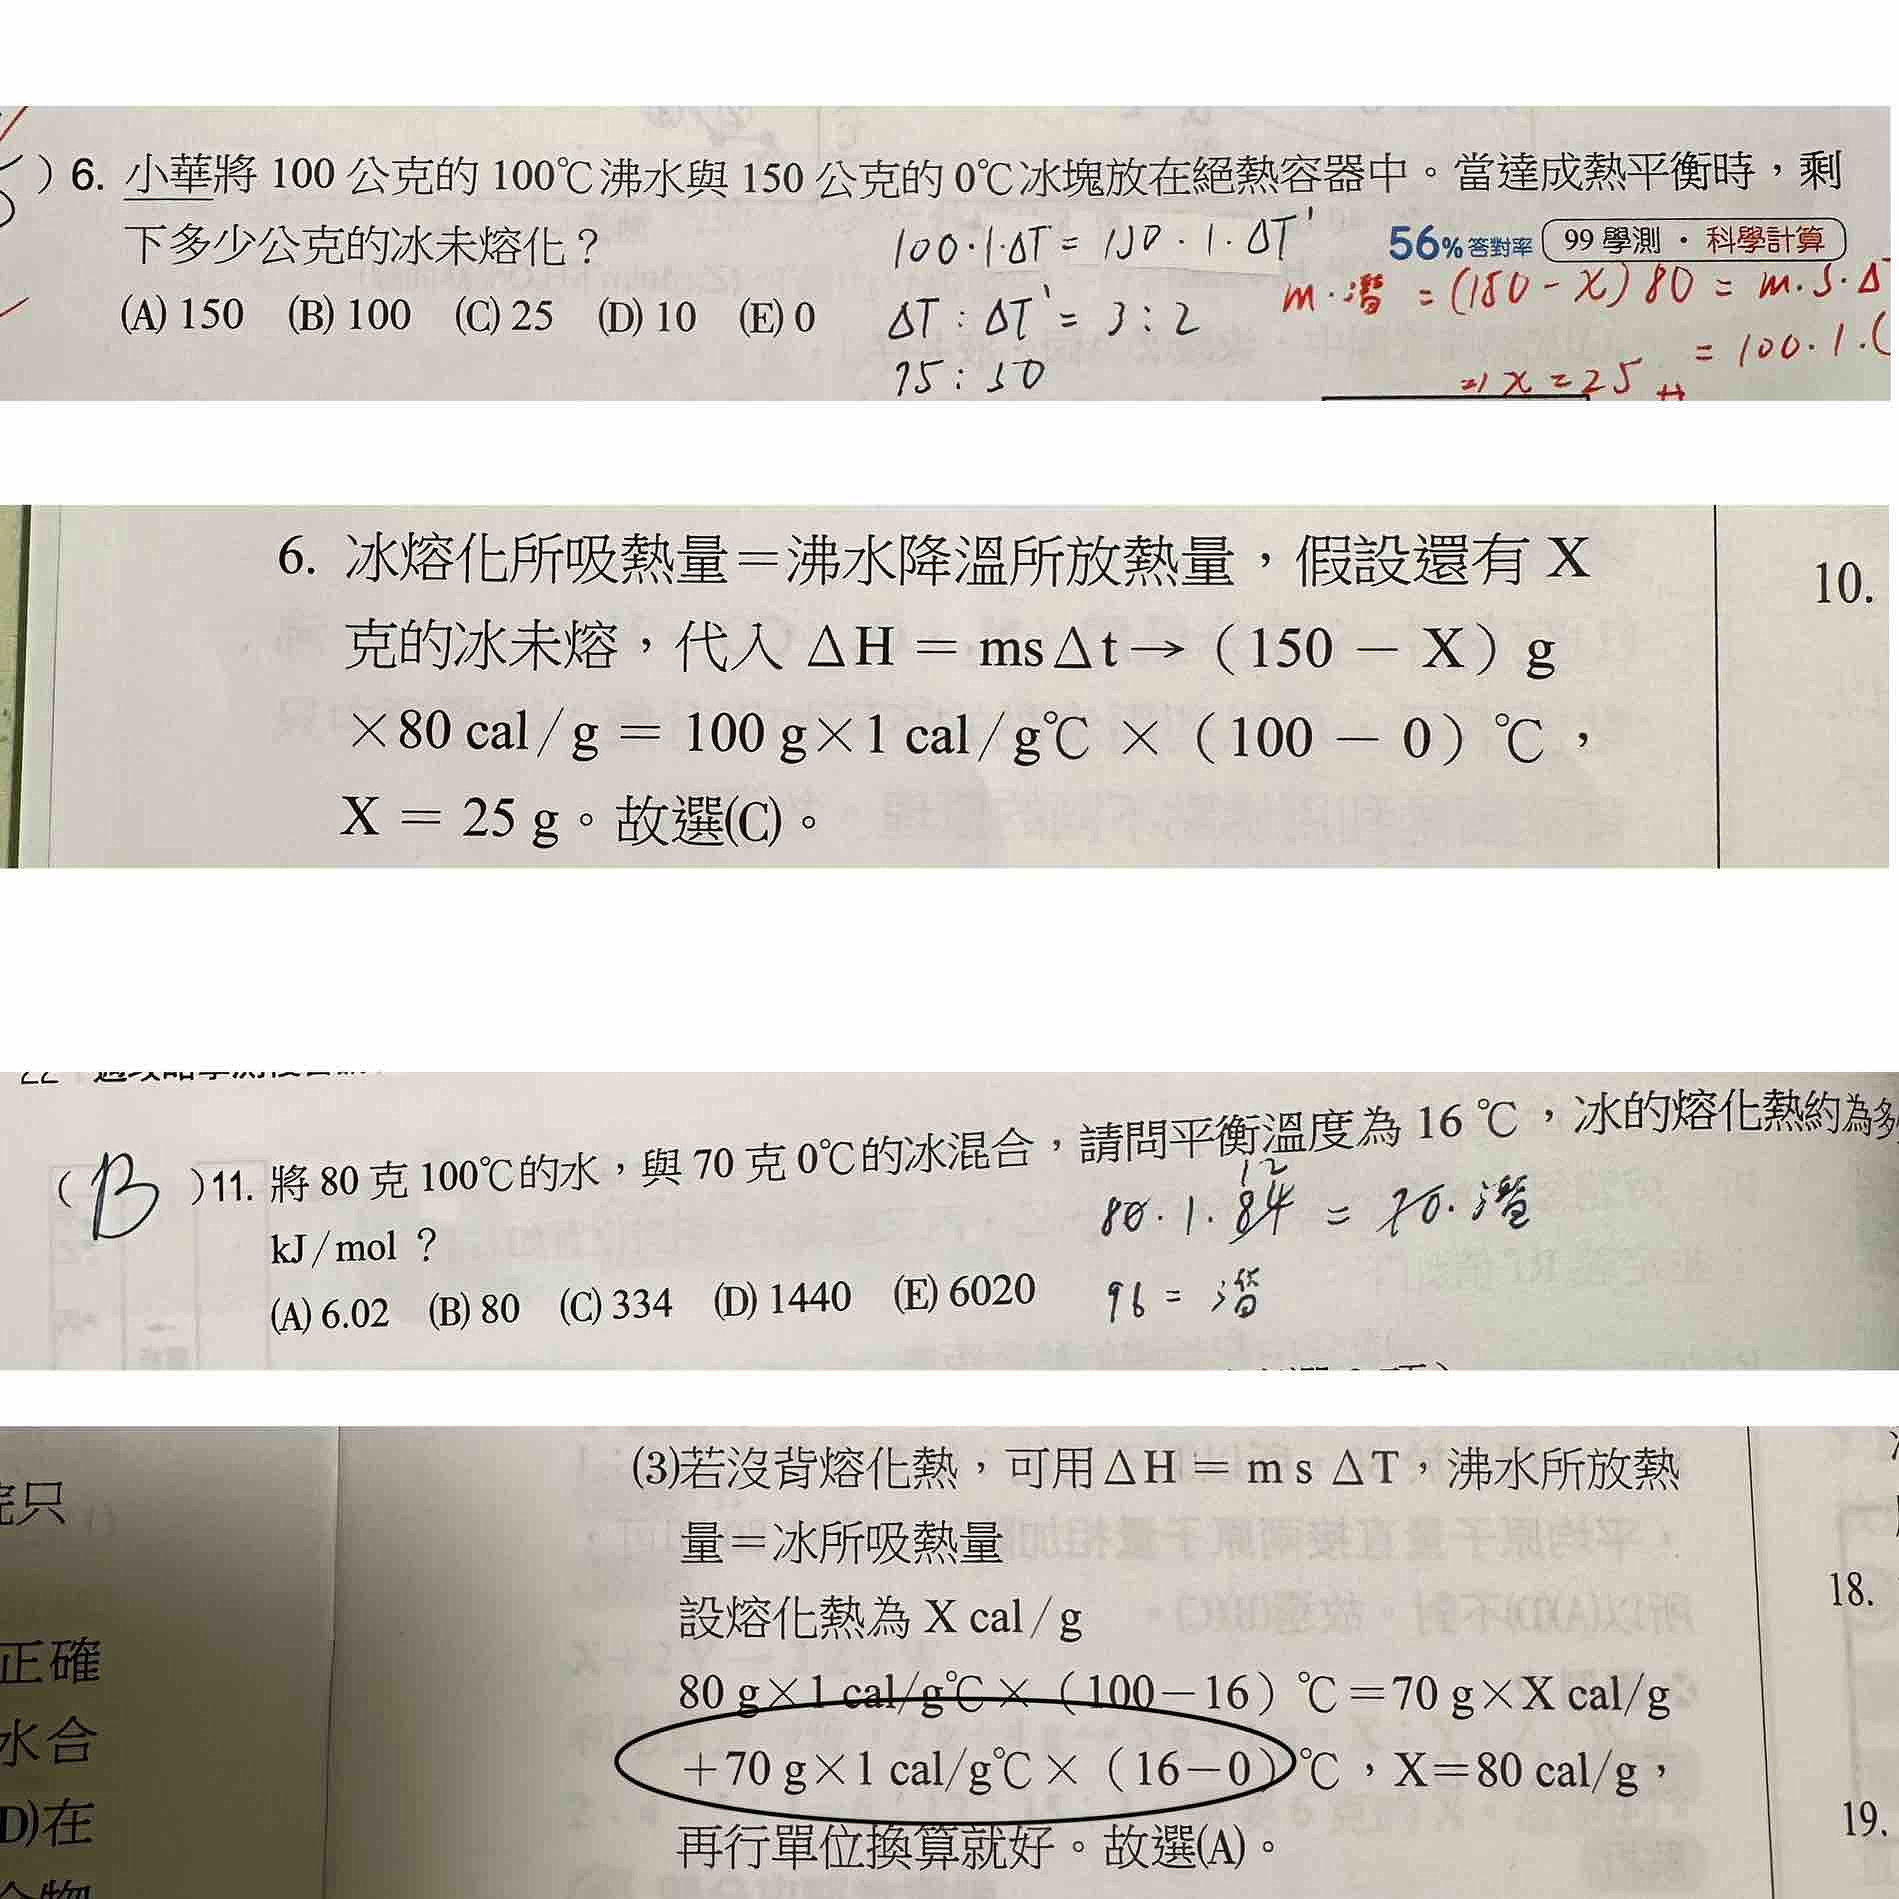 )6. 小華將 100 公克的 100℃沸水與 150 公克的 0℃冰塊放在絕熱容器中。當達成熱平衡時，剩
下多少公克的冰未熔化？
100·1·ΔT = 150·1·ΔT'
56%答對率 99 學測・科學計算
m·潛 = (150-X)80 = m.S.Δ
(A) 150 (B) 100 (C) 25 (D) 10 (E) 0
ΔT : ΔT' = 3 : 2
= 100.1.(
75 : 50
⇒ x = 25
6. 冰熔化所吸熱量＝沸水降溫所放熱量，假設還有 X
克的冰未熔，代入 ΔH ＝ msΔt→（150 － X）g
×80 cal/g ＝ 100 g×1 cal/g℃ ×（100 － 0）℃，
X ＝ 25 g。故選(C)。
10.
(B)11. 將 80 克 100℃的水，與 70 克 0℃的冰混合，請問平衡溫度為 16 ℃，冰的熔化熱約為多
kJ/mol ？
12
80·1·84 = 70·潛
(A) 6.02 (B) 80 (C) 334 (D) 1440 (E) 6020
96 = 潛
(3)若沒背熔化熱，可用ΔH＝m s ΔT，沸水所放熱
量＝冰所吸熱量
設熔化熱為 X cal/g
80 g×1 cal/g℃×（100－16）℃＝70 g×X cal/g
＋70 g×1 cal/g℃×（16－0）℃，X＝80 cal/g，
再行單位換算就好。故選(A)。
只
正確
水合
D)在
18.
19.